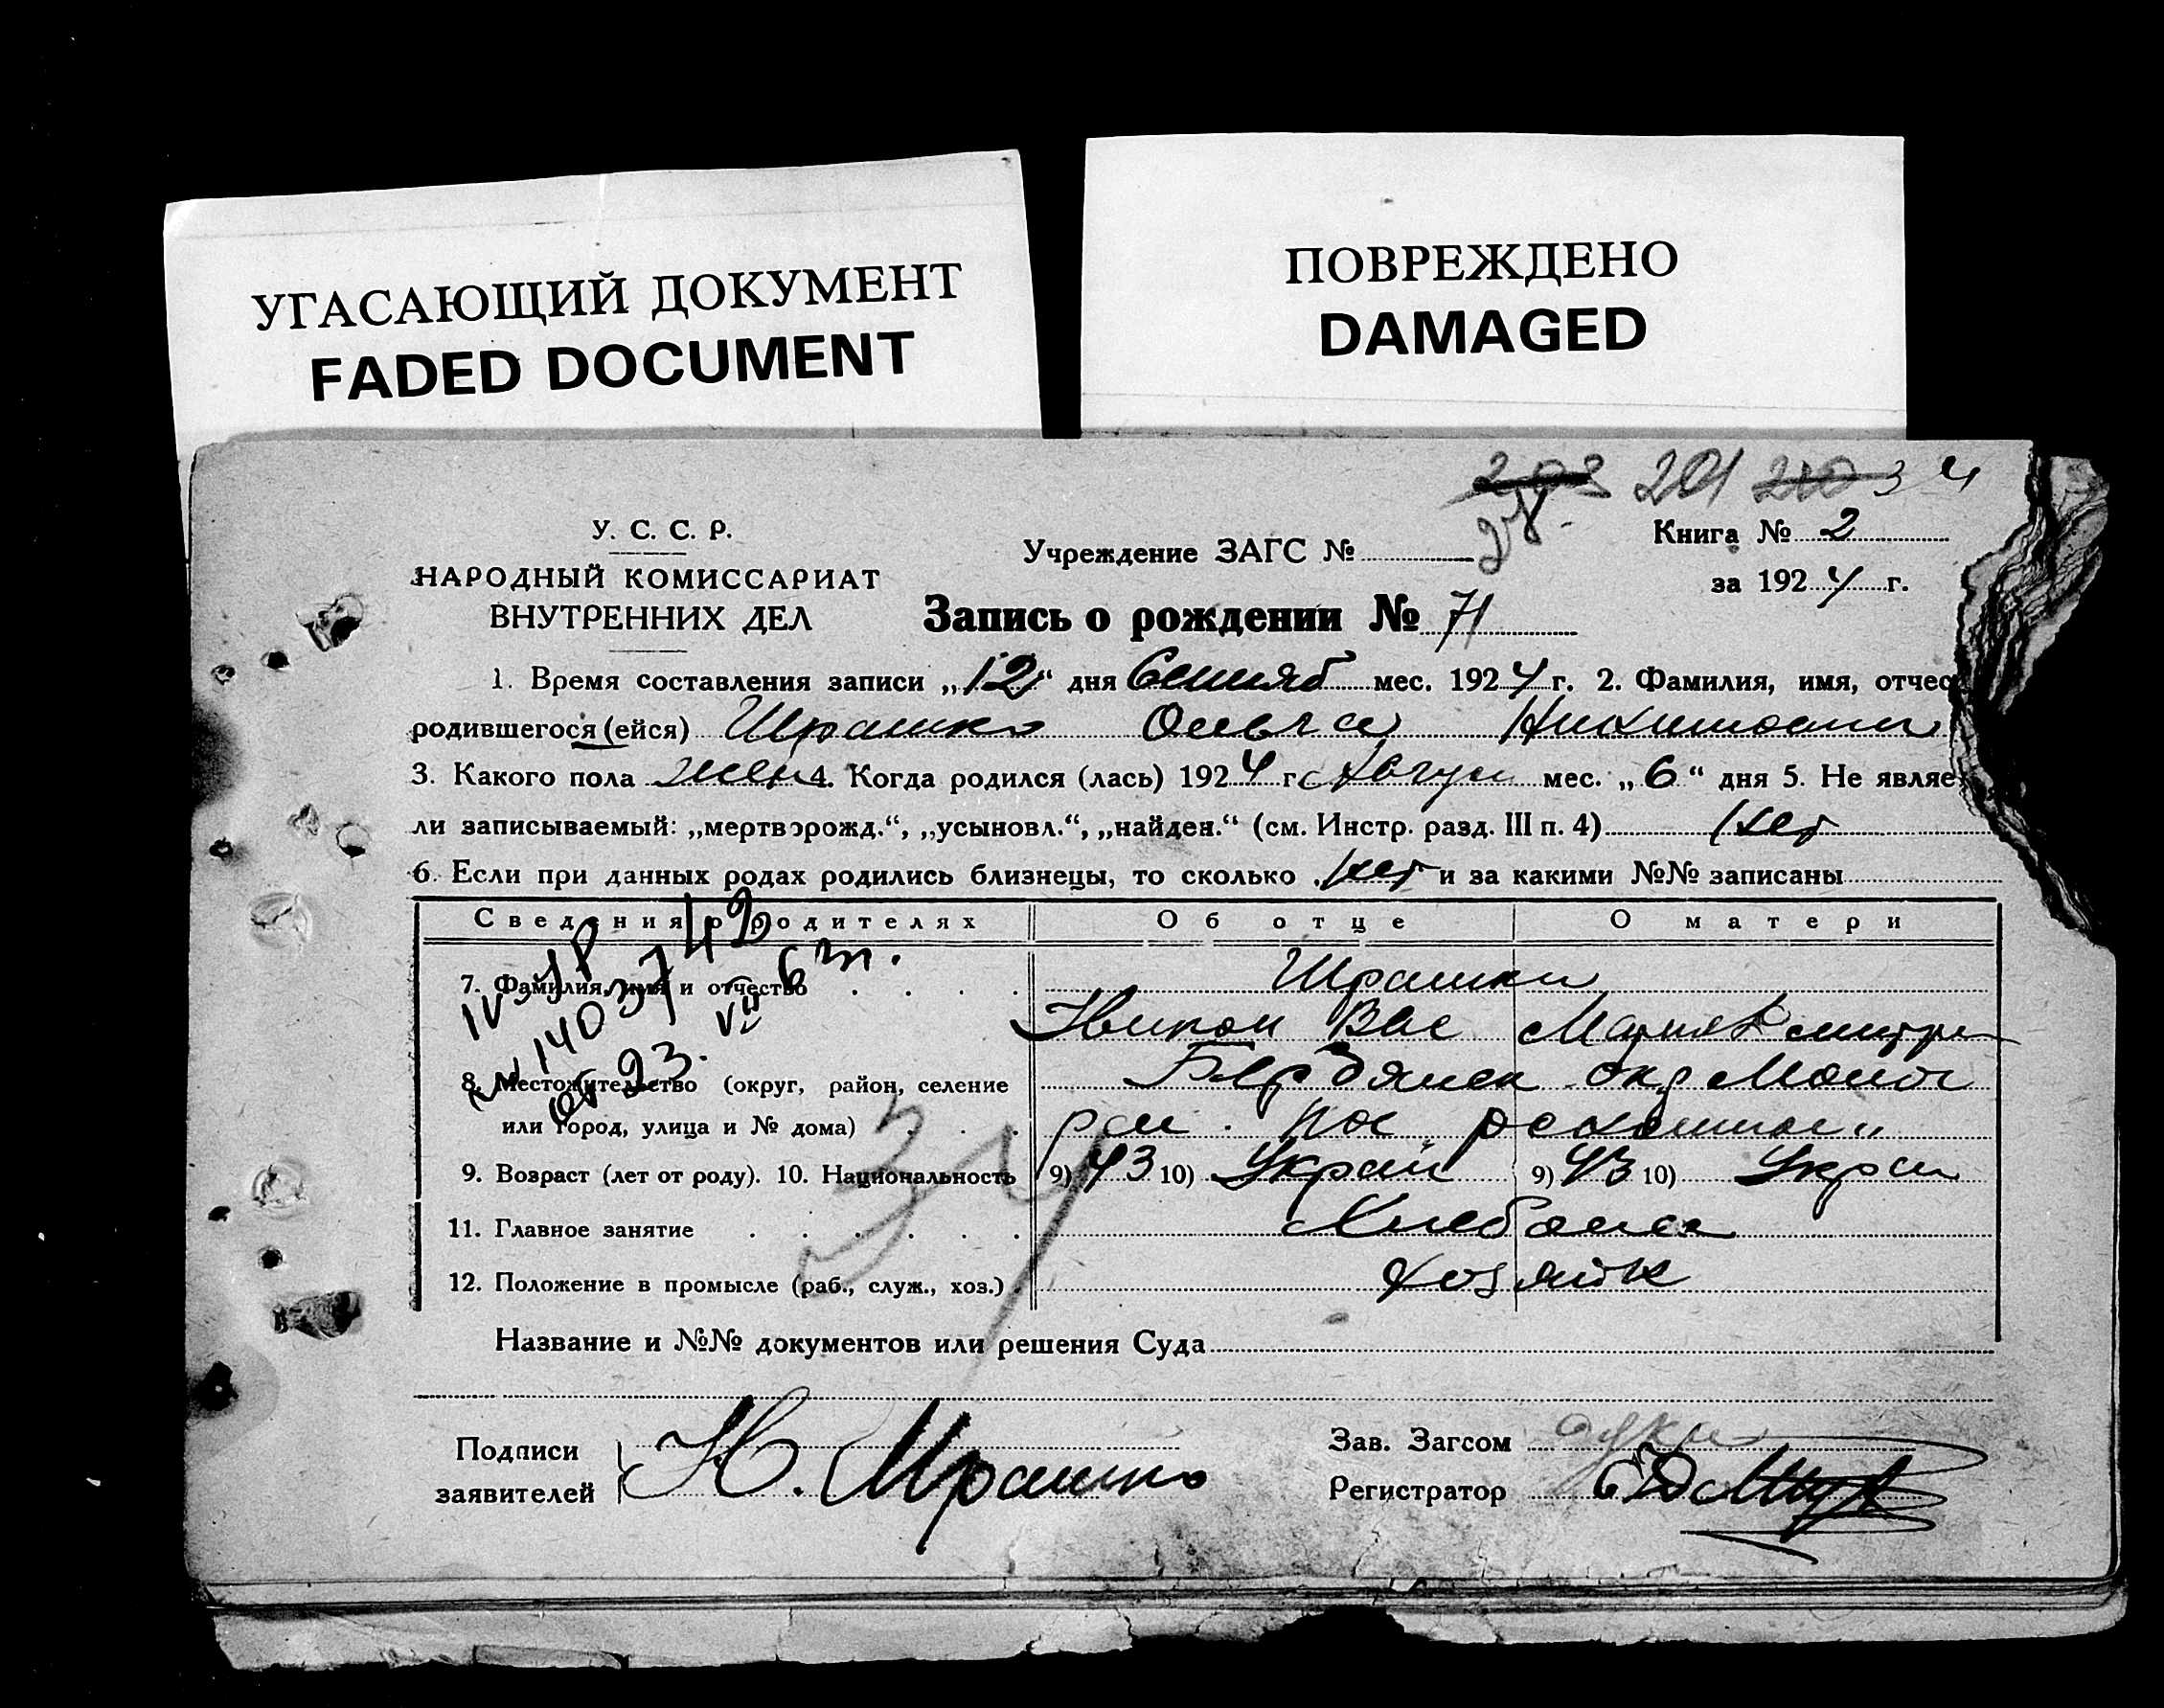 УГАСАЮЩИЙ ДОКУМЕНТ
FADED DOCUMENT
ПОВРЕЖДЕНО
DAMAGED
203 201 210 34
У. С. С. Р.
НАРОДНЫЙ КОМИССАРИАТ
ВНУТРЕННИХ ДЕЛ
Учреждение ЗАГС №
Книга № 2
за 1924 г.
Запись о рождении № 71
1. Время составления записи „12“ дня Сентяб мес. 1924 г. 2. Фамилия, имя, отчес
родившегося (ейся) Ольга
3. Какого пола жен 4. Когда родился (лась) 1924 г. Авгус мес. „6“ дня 5. Не являе
ли записываемый: „мертворожд.“, „усыновл.“, „найден.“ (см. Инстр. разд. III п. 4) Нет
6. Если при данных родах родились близнецы, то сколько нет и за какими №№ записаны
Сведения о родителях Об отце О матери
7. Фамилия, имя и отчество
Вас Мария
8. Местожительство (округ, район, селение Бердянск окр
или город, улица и № дома) пос
9. Возраст (лет от роду). 10. Национальность 9) 43 10) Украин 9) 43 10) Украи
11. Главное занятие Хлебопаш
12. Положение в промысле (раб., служ., хоз.) хозяйк
Название и №№ документов или решения Суда
Подписи
заявителей Н.
Зав. Загсом
Регистратор